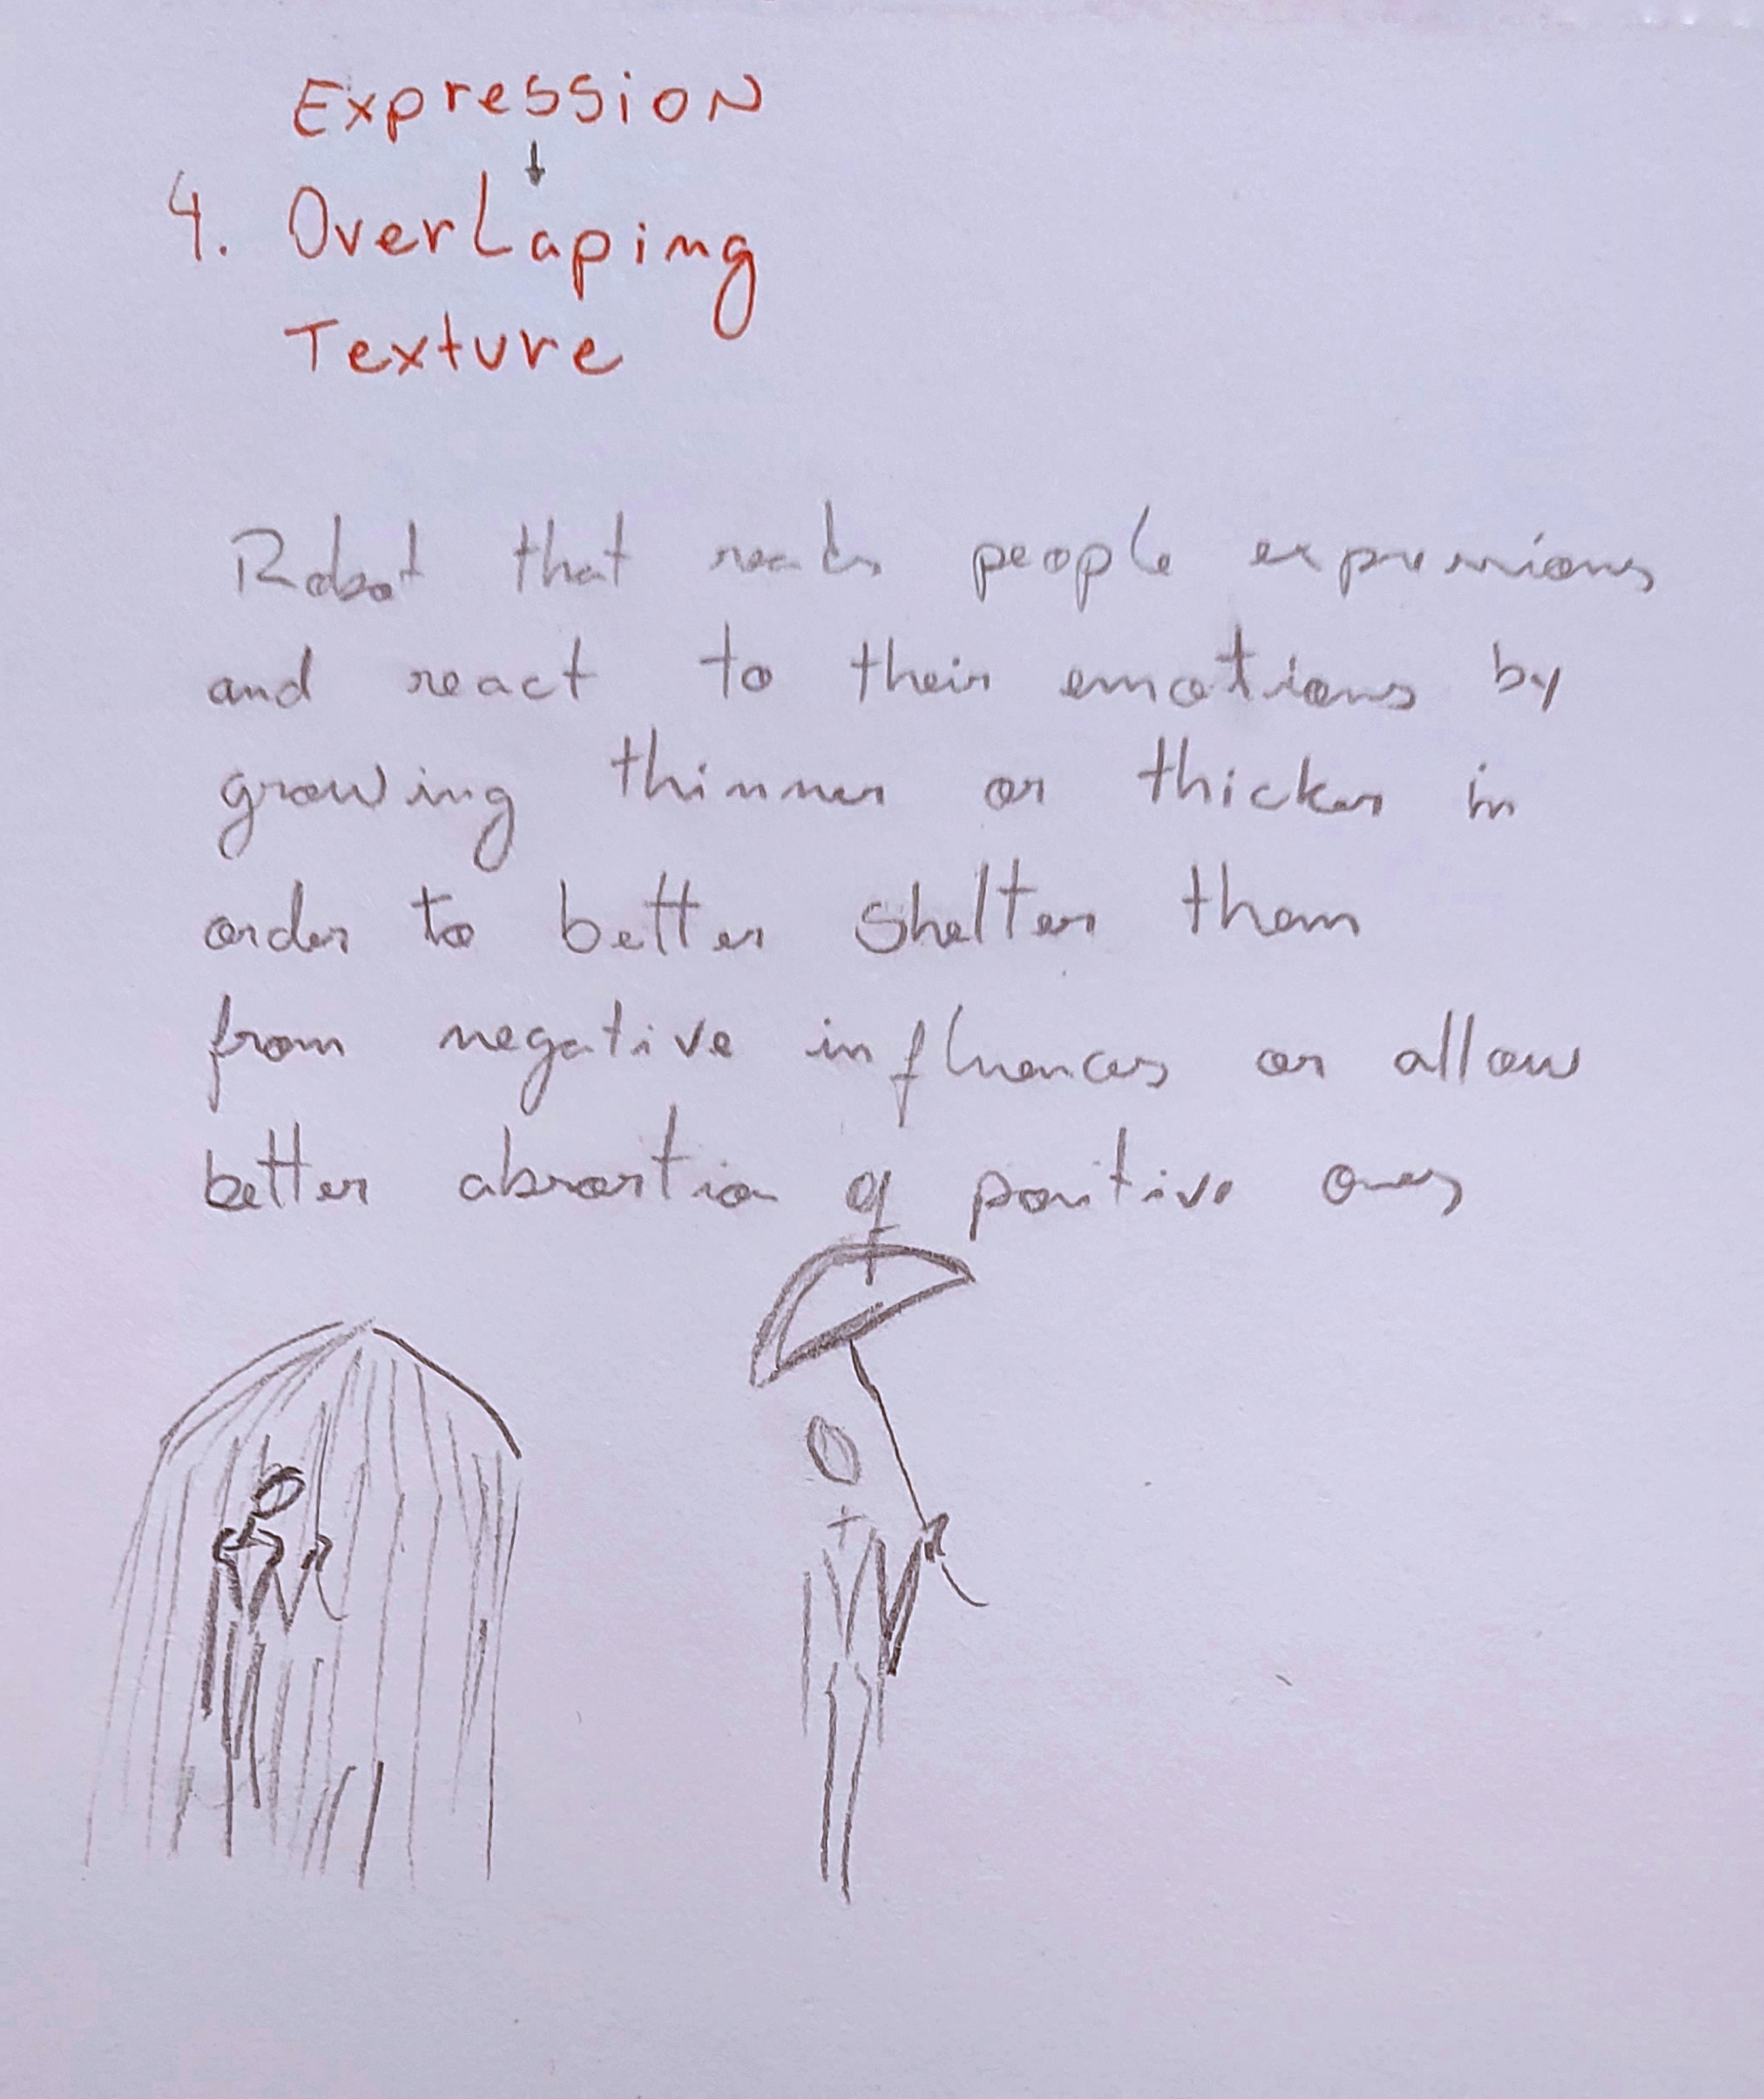 Expression
4. Overlaping
Texture
Robot that reads people expressions
and react to their emotions by
growing thinner or thicker in
order to better shelter them
from negative influences or allow
better absortion of positive ones